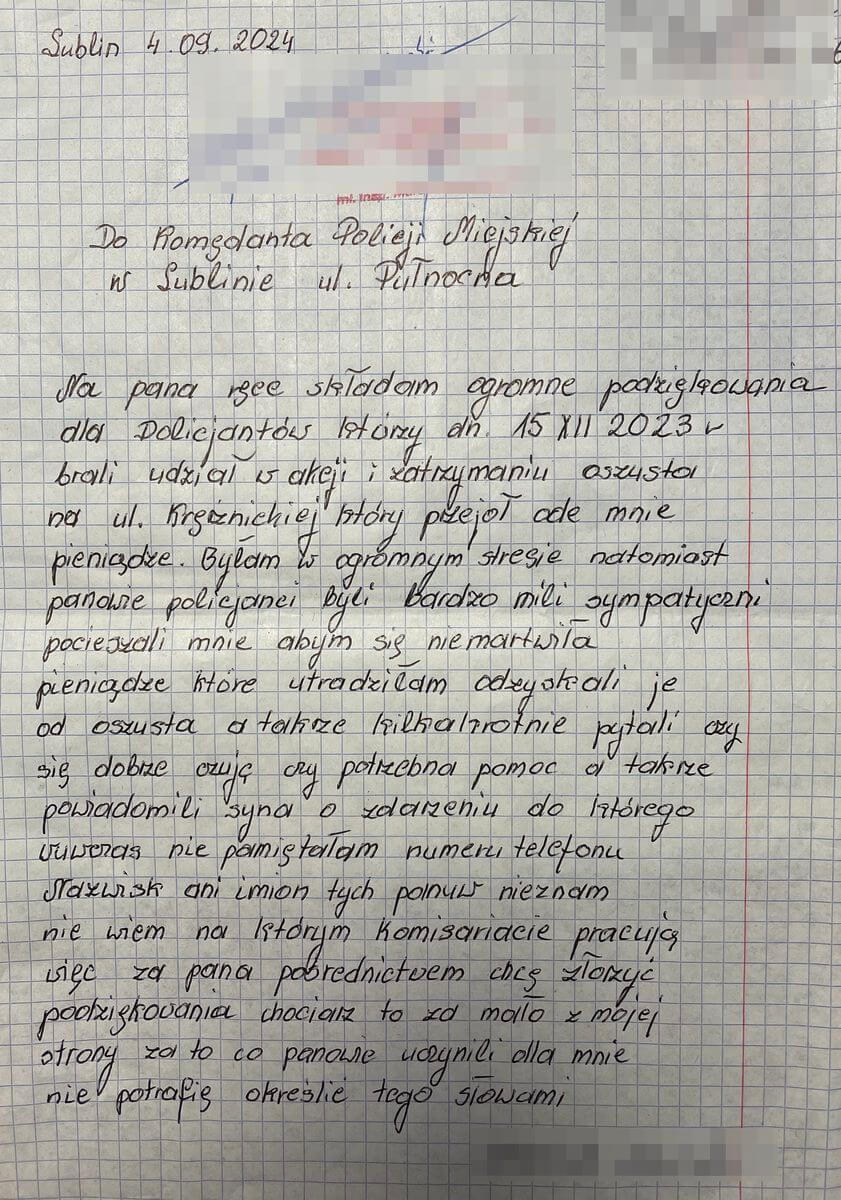 Lublin 4.09.2024
Do Komędanta Policji Miejskiej
w Lublinie ul. Pułnocna
Na pana ręce składam ogromne podzięlęowania
dla Policjantów którzy dn. 15 XII 2023 r
brali udział w akcji i zatrzymaniu oszusta
na ul. Kręźnickiej który przejoł ode mnie
pieniądze. Byłam w ogromnym stresie natomiast
panowie policjanci byli bardzo mili sympatyczni
pocieszali mnie abym się niemartwiła
pieniądze które utradziłam odzyskali je
od oszusta a takrze kilkakrotnie pytali czy
się dobrze czuję czy potrzebna pomoc a takrze
powiadomili syna o zdarzeniu do którego
wuwczas nie pamiętałam numeru telefonu
Nazwisk ani imion tych panuw nieznam
nie wiem na którym komisariacie pracują
więc za pana pośrednictwem chcę złorzyć
podziękowania chociarz to za mało z mojej
strony za to co panowie uczynili dla mnie
nie potrafię określić tego słowami